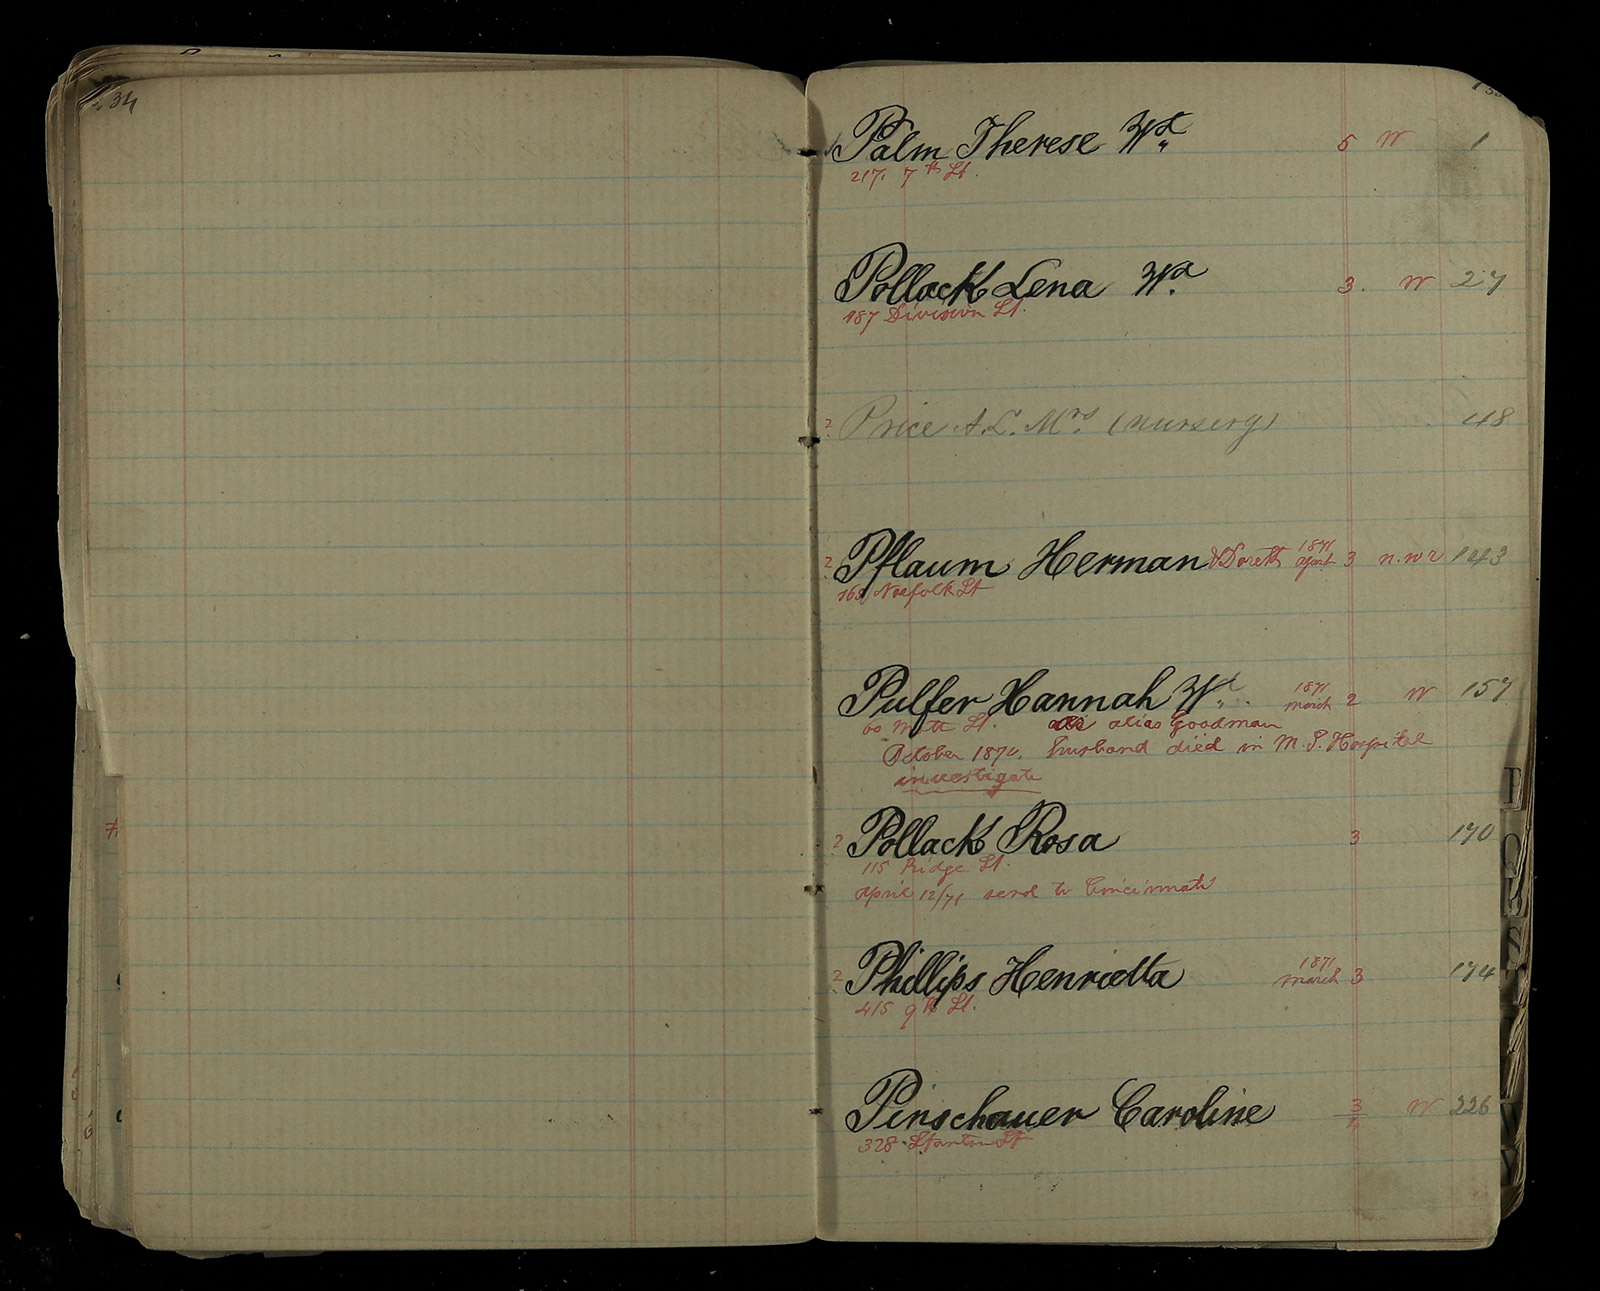 34
Palm Therese Wd. 5 W 1
217. 7th St.
Pollack Lena Wd. 3. W 27
187 Division St.
2 Price A. L. Mrs. (nursery) 48
2 Pflaum Herman & Doreth 1871 April 3 n.w r 143
163 Norfolk St
Pulfer Hannah Wd. 1871 march 2 W 157
60 St. alias Goodman
October 1870. husband died in M. S. Hospital
investigate
2 Pollack Rosa 3 170
115 Ridge St.
April 12/71 send to Cincinnati
2 Phillips Henrietta 1871 march 3 174
415 9th St.
Pinschauer Caroline 3 W 226
328 Stanton St
P
Q
R
S
T
W
Y